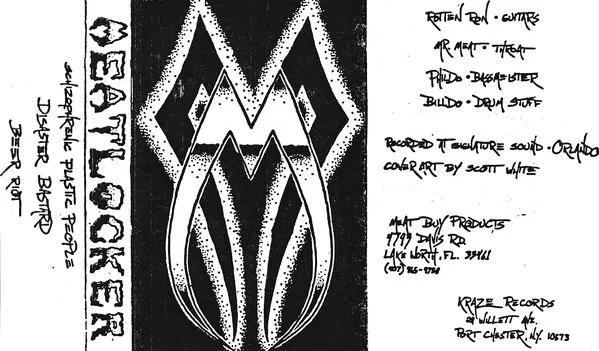 MEATLOCKER
SCHIZOPHRENIC PLASTIC PEOPLE
DISASTER BASTARD
BEER RIOT
M
ROTTEN RON • GUITARS
MR. MEAT • THROAT
PHILDO • BASSMEISTER
BILLDO • DRUM STUFF
RECORDED AT SIGNATURE SOUND • ORLANDO
COVER ART BY SCOTT WHITE
MEAT BUY PRODUCTS
4793 DAVIS RD.
LAKE WORTH, FL. 33461
(407)
KRAZE RECORDS
WILLETT AVE.
PORT CHESTER, N.Y. 10573